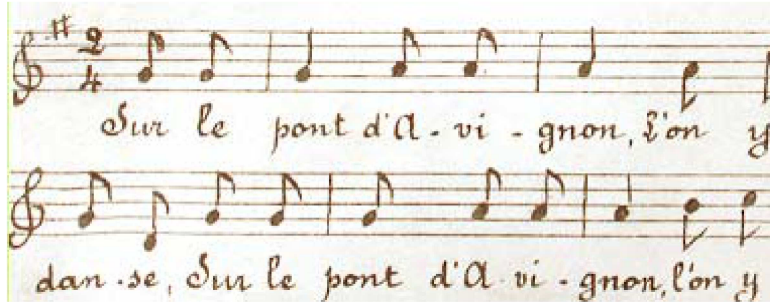 2
4
Sur le pont d'A - vi - gnon, l'on y
dan - se, Sur le pont d'A - vi - gnon, l'on y